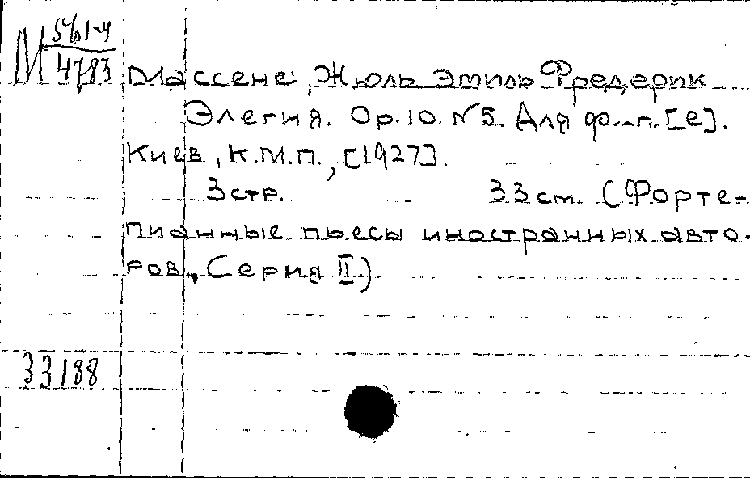 М 561-4
4783
Массене, Жюль Эмиль Фредерик
Элегия. Ор. 10 №5. Для ф.-п. [е].
Киев, К.М.П., [1927].
3 стр. 33 cm. (Форте-
пианные пьесы иностранных авто-
ров, Серия II)
33188